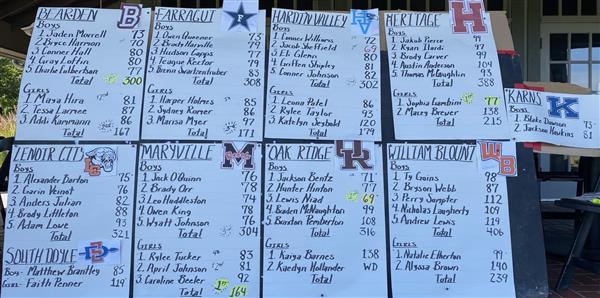 BEARDEN
Boys
1 Jaden Morrell 73
2 Bryce Harmon 70
3 Conner Hall 80
4 Gray Loftin 80
5 Charlie Culberson 77
Total 300
GIRLS
1 Maya Hira 81
2 Tessa Larrnee 87
3 Addi Kammann 86
Total 167
FARRAGUT
Boys
1 Owen Queener 73
2 Brady Haryille 79
3 Hudson Capps 77
4 Teague Rector 79
5 Brenin Swartzentruber 83
Total 308
GIRLS
1 Harper Holmes 85
2 Sydney Romer 86
3 Marisa Myer 77
Total 171
HARDIN VALLEY
Boys
1 Conner Williams 72
2 Jacob Sheffield 69
3 Eli Glenn 80
4 Griffen Shipley 81
5 Connor Johnson 82
Total 302
GIRLS
1 Leona Patel 86
2 Rylee Taylor 93
3 Katelyn Seybold 120
Total 179
HERITAGE
Boys
1 Jakub Pierce 99
2 Ryan Ilardi 97
3 Brody Carver 99
4 Austin Anderson 104
5 Thomas McGaughlin 93
Total 388
GIRLS
1 Sophia Gambini 77
2 Macey Brewer 138
Total 215
KARNS
K
1 Blake Dawson 75
2 Jackson Hawkins 81
LENOIR CITY
Boys
1 Alexander Barton 75
2 Garin Veinot 76
3 Anders Julian 82
4 Brody Littleton 88
5 Adam Lowe 93
Total 321
SOUTH DOYLE
Boy- Matthew Brantley 85
Girl- Faith Penner 119
MARYVILLE
Boys
1 Jack O'Quinn 76
2 Brady Orr 78
3 Leo Huddleston 74
4 Owen King 78
5 Wyatt Johnson 76
Total 304
GIRLS
1 Rylee Tucker 83
2 April Johnson 81
3 Caroline Beeler 92
Total 164
OAK RIDGE
Boys
1 Jackson Bentz 71
2 Hunter Hinton 77
3 Lewis Niad 69
4 Braden McNaughton 99
5 Braxton Pemberton 108
Total 316
GIRLS
1 Kaiya Barnes 138
2 Kaedyn Hollander WD
WILLIAM BLOUNT
Boys
1 Ty Groins 98
2 Bryson Webb 87
3 Perry Sumpter 112
4 Nicholas Laugherty 109
5 Andrew Lewis 119
Total 406
GIRLS
1 Natalie Elherton 99
2 Alyssa Brown 140
Total 239